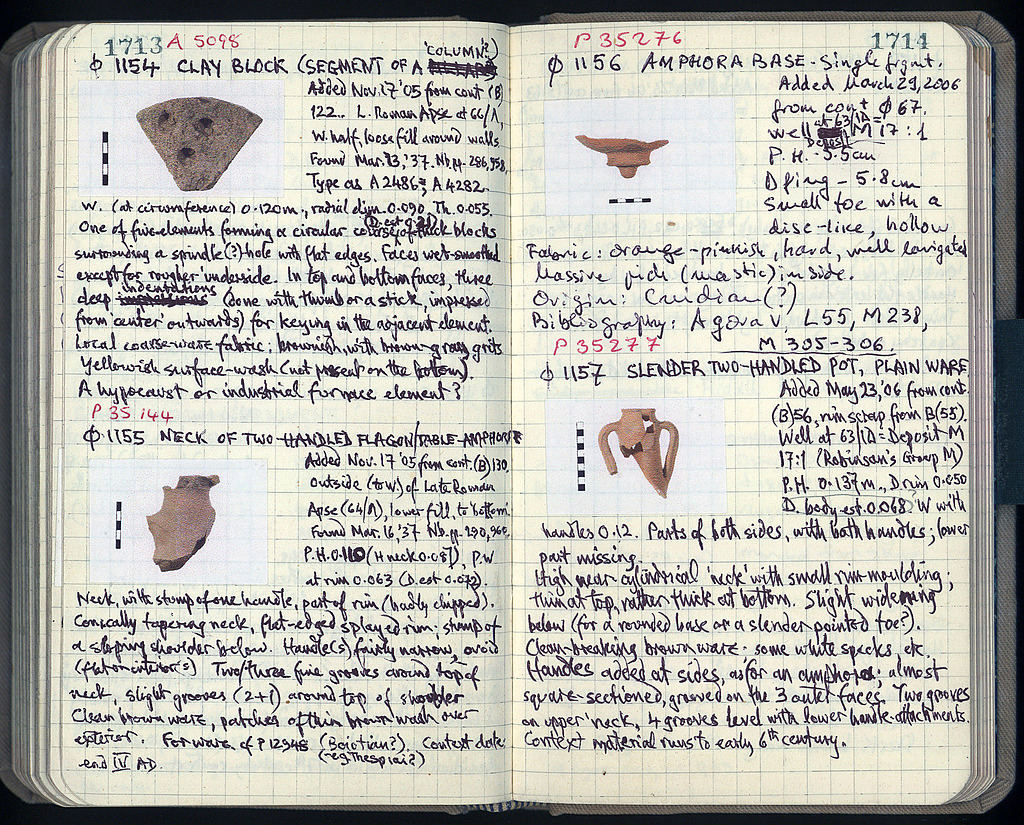 1713 A 5098
'COLUMN'?)
φ 1154 CLAY BLOCK (SEGMENT OF A
Added Nov. 17 '05 from cont (B)
122.. L. Roman Apse at 66/Λ,
W. half, loose fill around walls
Found Mar. 13, '37. Nb. pp. 286, 958,
Type as A 2486; A 4282.
W. (at circumference) 0.120m., radial dim. 0.090, Th. 0.055.
(D. est 0.21)
One of five elements forming a circular course of thick blocks
surrounding a spindle(?)-hole with flat edges. Faces wet-smoothed
except for rougher underside. In top and bottom faces, three
indentations
deep impressions (done with thumb or a stick, impressed
from center outwards) for keying in the adjacent element.
Local coarse-ware fabric; brownish, with brown-gray grits
Yellowish surface-wash (not present on the bottom).
A hypocaust or industrial furnace element?
P 35144
φ 1155 NECK OF TWO-HANDLED FLAGON/TABLE-AMPHORA
Added Nov. 17 '05 from cont. (B) 130.
Outside (to W) of Late Roman
Apse (66/Λ), lower fill, to bottom.
Found Mar. 16, '37 Nb. pp. 290, 960.
P.H. 0.110 (H neck 0.087), P.W
at rim 0.063 (D. est 0.072).
Neck, with stump of one handle, part of rim (badly chipped).
Conically tapering neck, flat-edged splayed rim; stump of
a sloping shoulder below. Handle(s) fairly narrow, ovoid
(flat on interior(s)) Two/three fine grooves around top of
neck, slight grooves (2+1) around top of shoulder
Clean brown ware, patches of thin brown wash over
exterior. For ware cf P 12948 (Boiotian?). Context date
(e.g. Thespiai?)
end IV AD.
P 35276 1714
φ 1156 AMPHORA BASE - Single frgmt.
Added March 29, 2006
from cont φ 67.
at 63/ΙΔ =
well M 17:1
Deposit
P.H. - 5.5cm
D fing - 5.8cm
Small toe with a
disc-like, hollow
Fabric: orange-pinkish, hard, well levigated
Massive pich (mastic) inside.
Origin: Cnidian (?)
Bibliography: Agora V, L55, M238,
M 305-306.
P 35277
φ 1157 SLENDER TWO-HANDLED POT, PLAIN WARE
Added May 23, '06 from cont.
(B) 56, rim scrap from B (55).
Well at 63/ΙΔ = Deposit M
17:1 (Robinson's Group M)
P.H. 0.137m., D rim 0.050
D. body est. 0.068. W with
handles 0.12. Parts of both sides, with both handles; lower
part missing.
High near-cylindrical 'neck' with small rim-moulding;
thin at top, rather thick at bottom. Slight widening
below (for a rounded base or a slender pointed toe?).
Clean-breaking brown ware - some white specks, etc.
Handles added at sides, as for an amphora; almost
square-sectioned, grooved on the 3 outer faces. Two grooves
on upper neck, 4 grooves level with lower handle-attachments.
Context material runs to early 6th century.